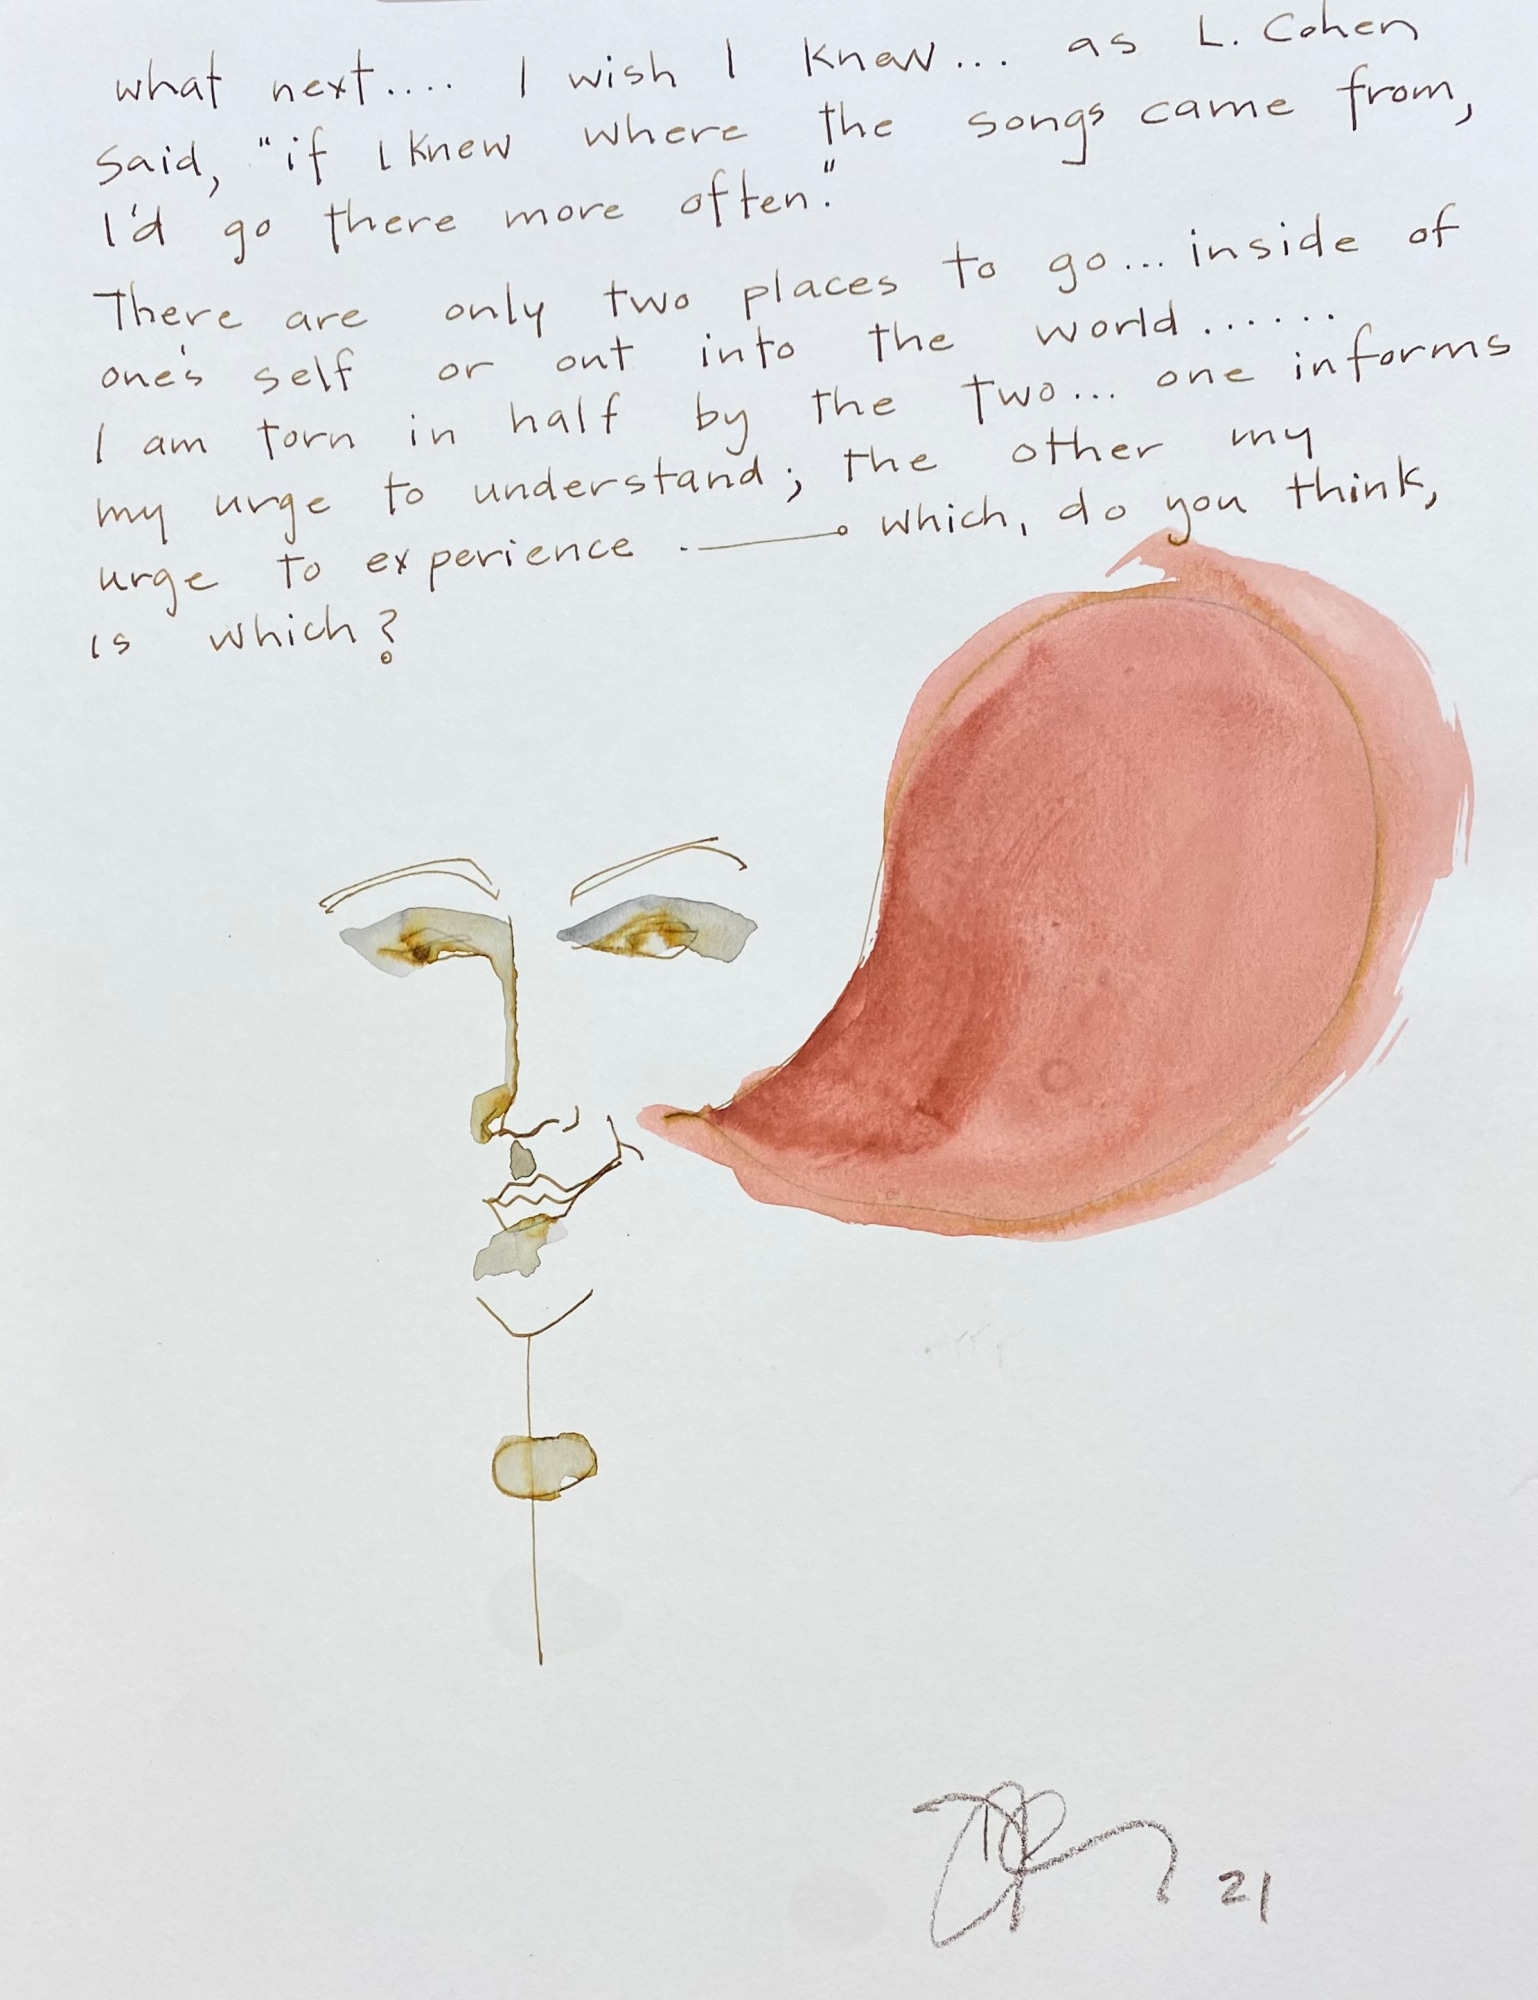 what next.... I wish I knew... as L. Cohen
said, "if I knew where the songs came from,
I'd go there more often."
There are only two places to go... inside of
one's self or out into the world......
I am torn in half by the two... one informs
my urge to understand; the other my
urge to experience. — which, do you think,
is which?
21